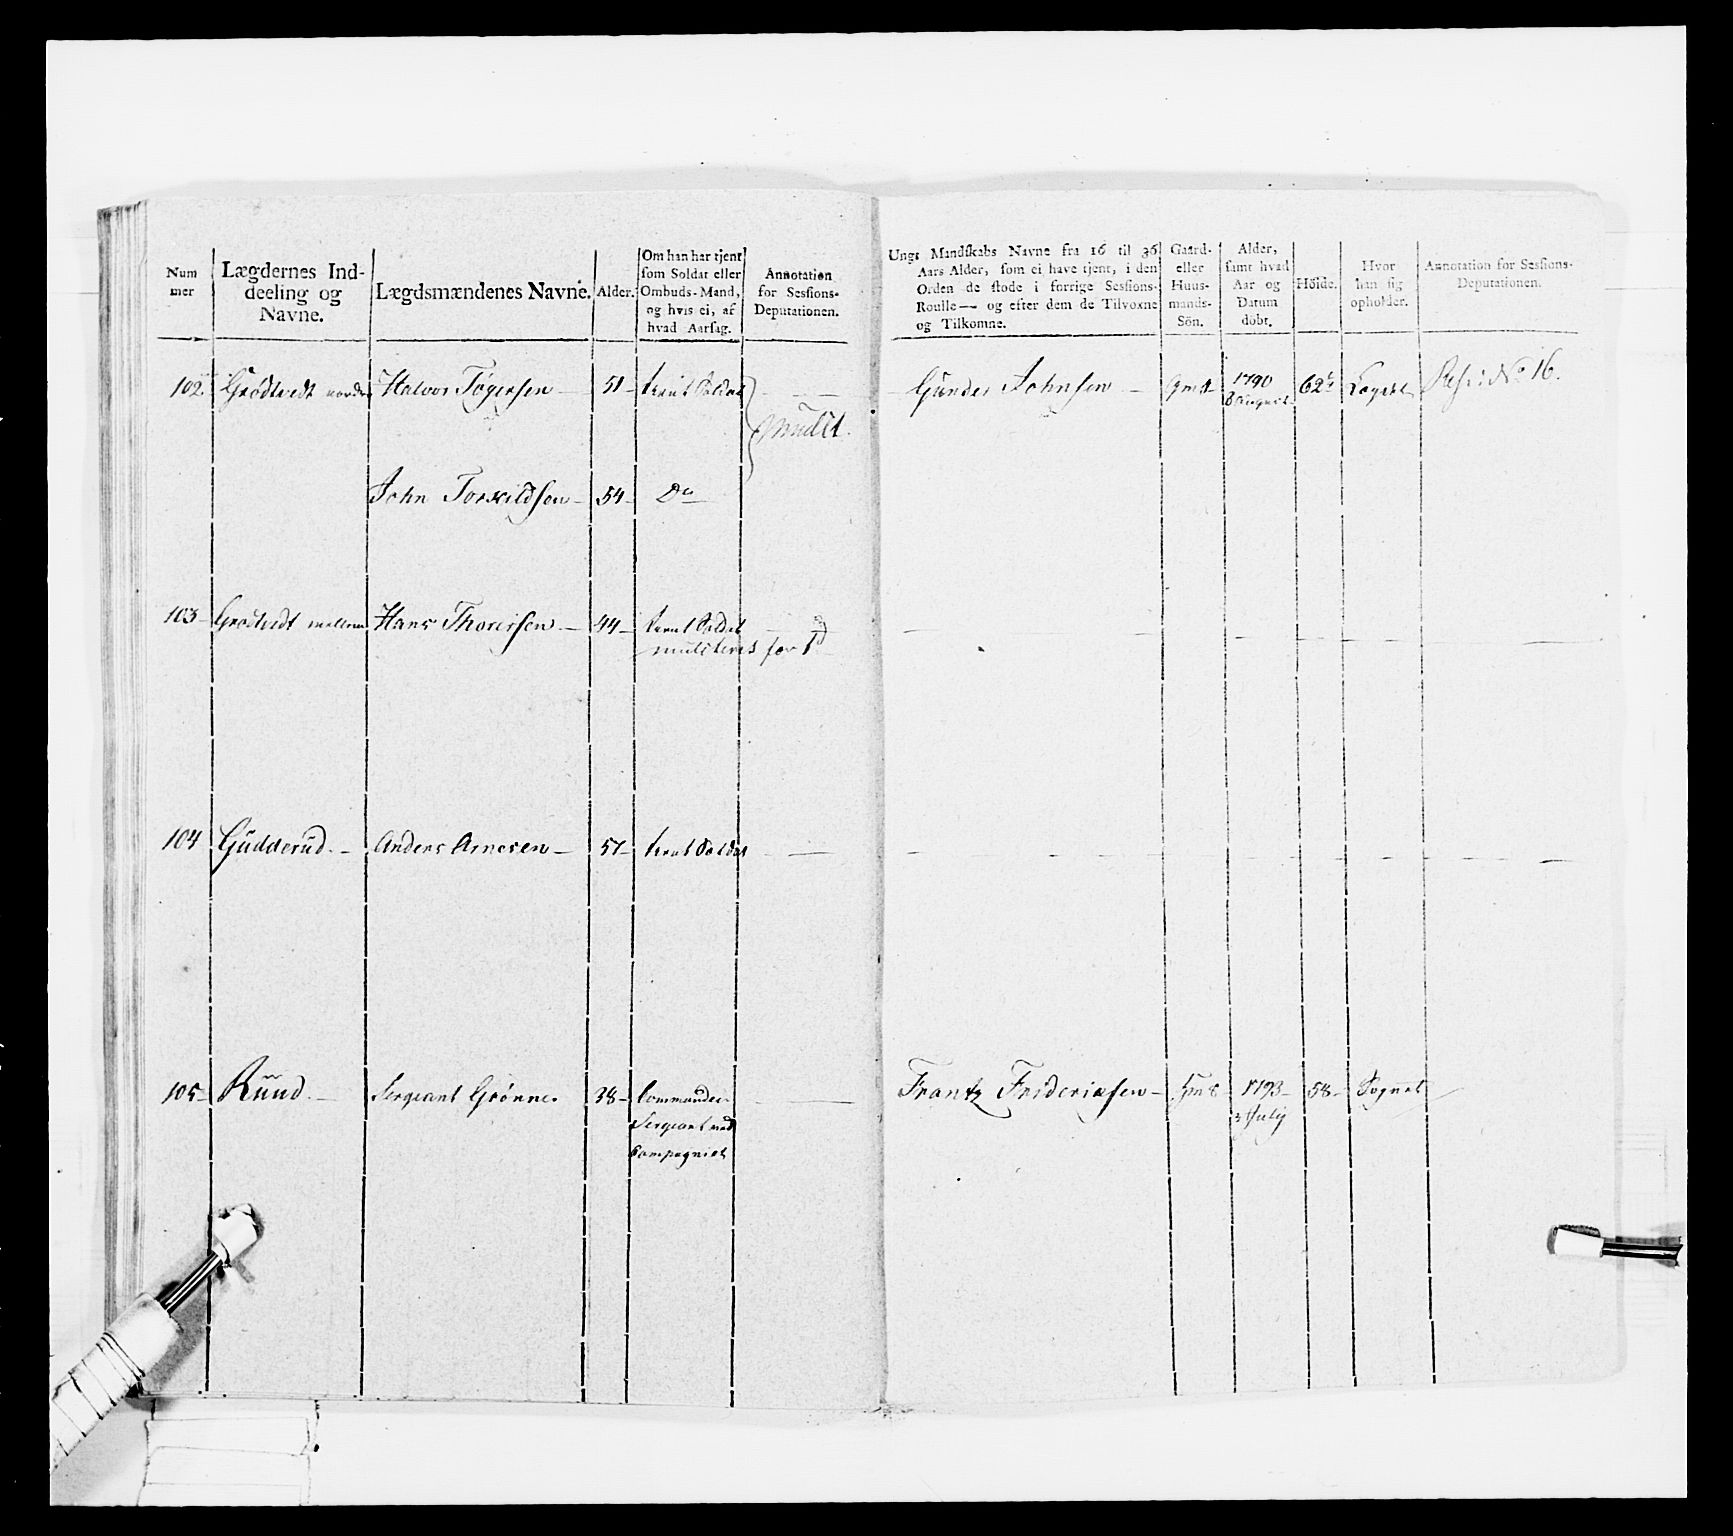 Num
mer
Lægdernes Ind-
deeling og
Navne.
Lægdsmændenes Navne.
Alder.
Om han har tjent
som Soldat eller
Ombuds-Mand,
og hvis ei, af
hvad Aarsag.
Annotation
for Sessions-
Deputationen.
Ungt Mandskabs Navne fra 16 til 36
Aars Alder, som ei have tjent, i den
Orden de stode i forrige Sessions-
Roulle — og efter dem de Tilvoxne
og Tilkomne.
Gaard-
eller
Huus-
mands-
Sön.
Alder,
samt hvad
Aar og
Datum
döbt.
Höide.
Hvor
han sig
opholder.
Annotation for Sessions-
Deputationen.
102 Grödtvedt nordre Halvor Tögersen — 51 — tient Soldat Gunder Johnsen — 1790 62 Lægdet No 16.
8 August
John Torkildsen — 54 — Do
103 — Grödtvedt mellem Hans Thoersen — 44 — tient Soldat
for 1
104 Gudderud — Anders Arnesen — 57 — tient Soldat
105 — Ruud — Sergeant Grönne. 38 — Commander Frantz Friderichsen — 1793 — 58 — Sognet
Sergeant ved July
Compagniet